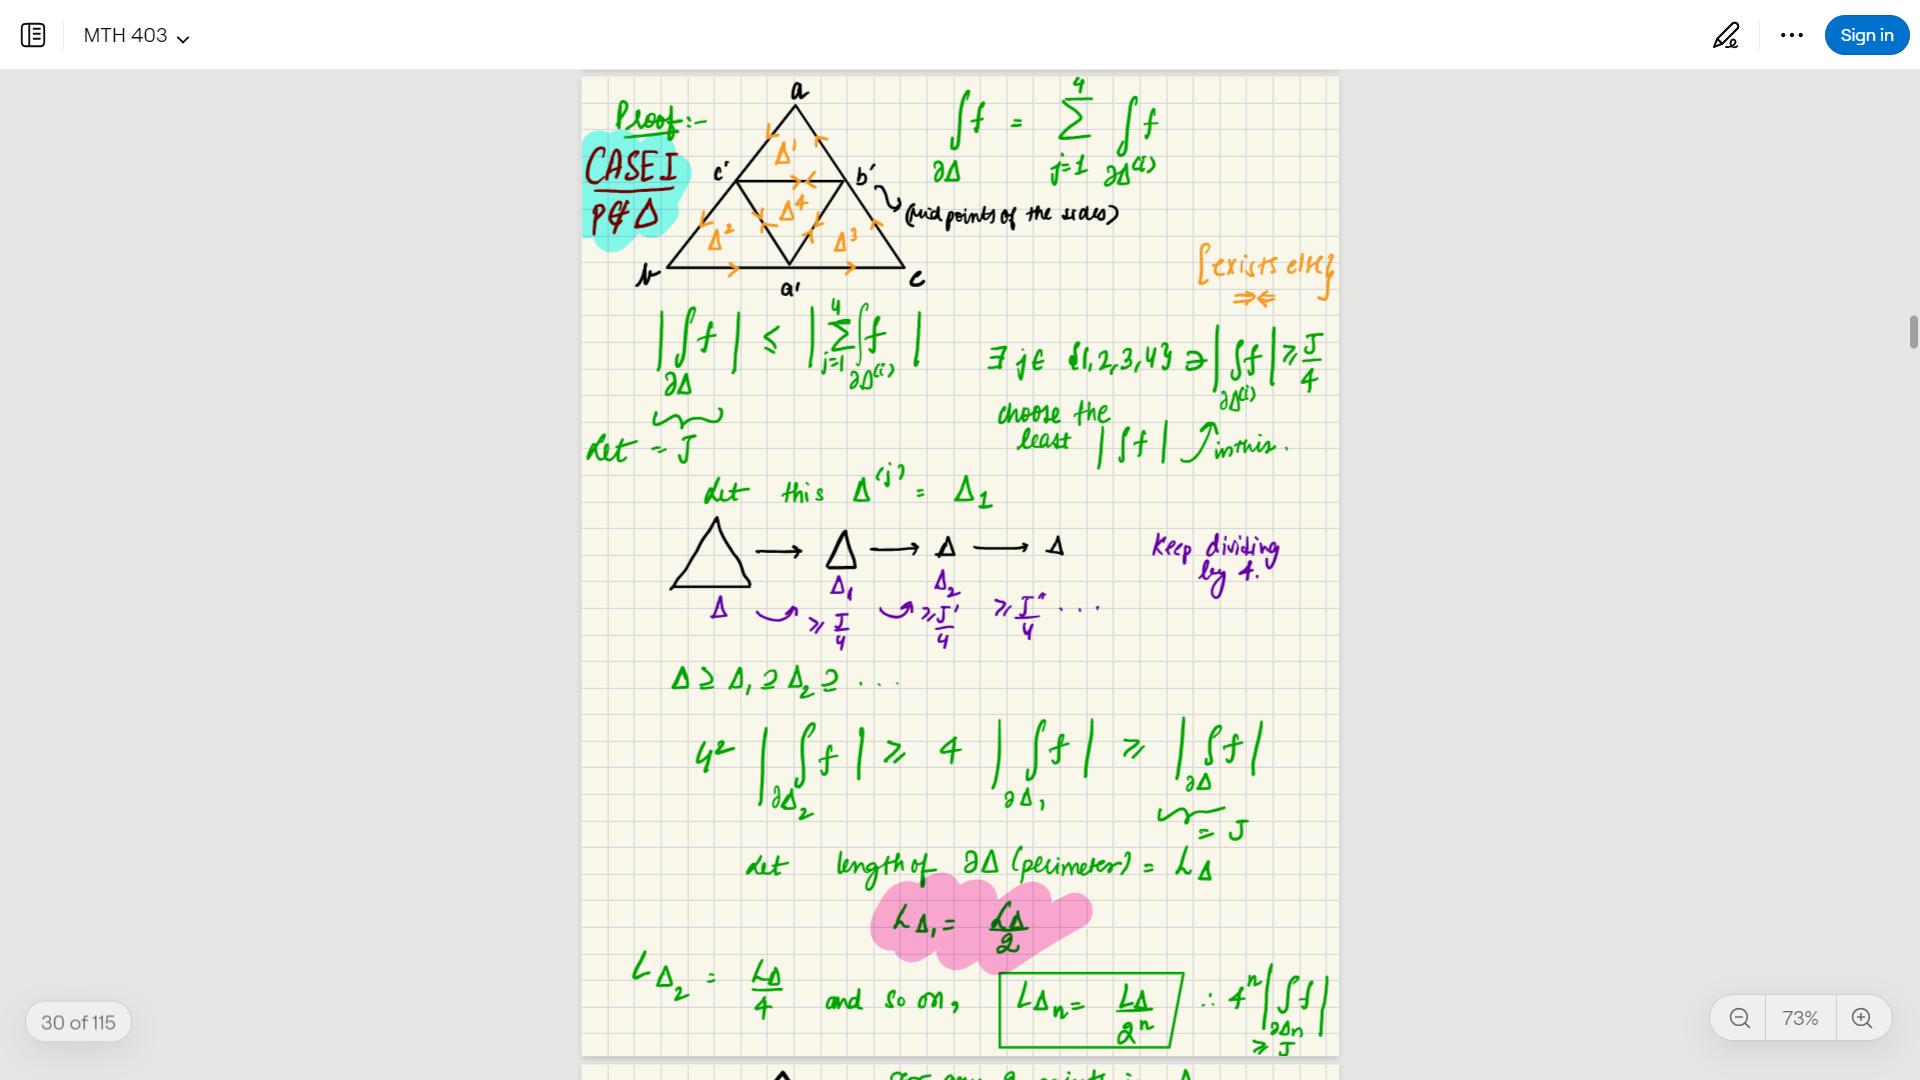 MTH 403
Sign in
Proof :-
CASE I
p ∉ Δ
a
c'
b'
b
a'
c
Δ¹
Δ²
Δ³
Δ⁴
∫_{∂Δ} f = Σ_{j=1}^{4} ∫_{∂Δ^{(i)}} f
(mid points of the sides)
[exists else]
⇒⇐
|∫_{∂Δ} f| ≤ |Σ_{j=1}^{4} ∫_{∂Δ^{(i)}} f|
∃ j ∈ {1,2,3,4} ∋ |∫_{∂Δ^{(i)}} f| ≥ J/4
Let = J
choose the
least |∫f| in this.
Let this Δ^{(j)} = Δ₁
Keep dividing
by 4.
Δ → Δ → Δ → Δ
Δ Δ₁ Δ₂
≥ J/4 ≥ J'/4 ≥ J"/4 ...
Δ ⊇ Δ₁ ⊇ Δ₂ ⊇ ...
4² |∫_{∂Δ₂} f| ≥ 4 |∫_{∂Δ₁} f| ≥ |∫_{∂Δ} f|
= J
Let length of ∂Δ (perimeter) = L_Δ
L_{Δ₁} = L_Δ/2
L_{Δ₂} = L_Δ/4 and so on, L_{Δn} = L_Δ/2ⁿ ∴ 4ⁿ |∫_{∂Δn} f|
≥ J
30 of 115
73%